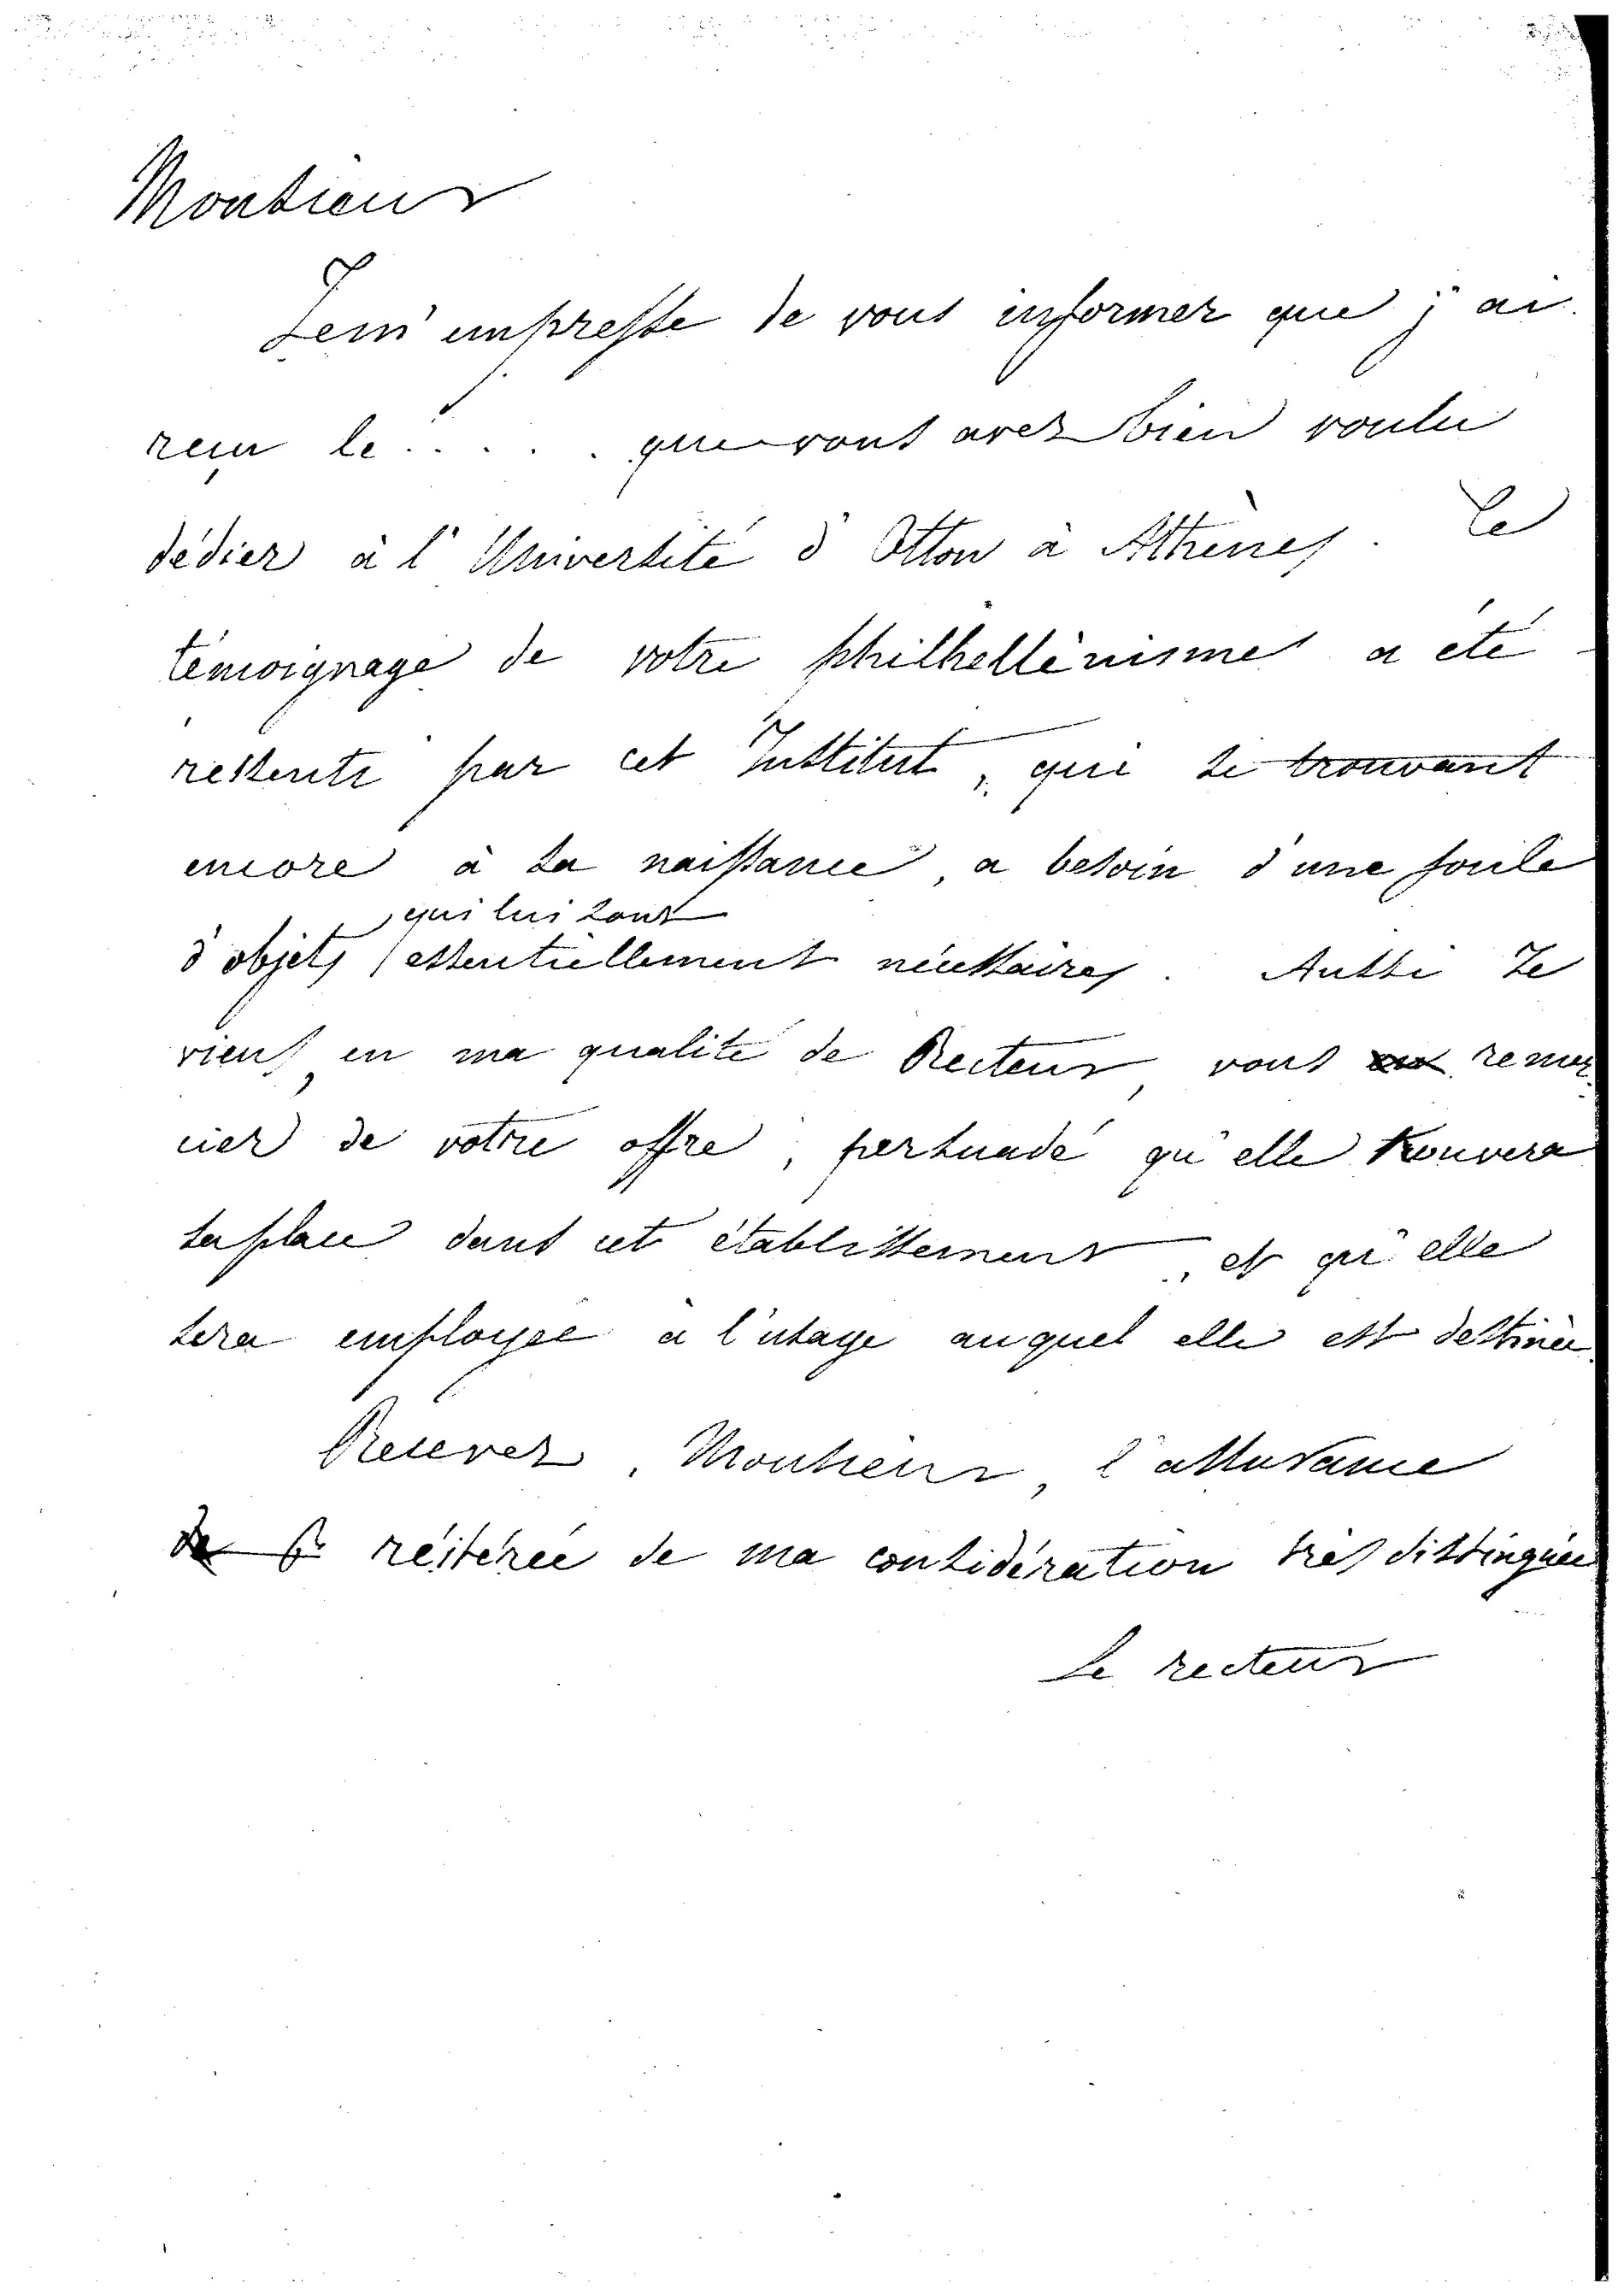 Monsieur
Je m'empresse de vous informer que j'ai
reçu le . . . . . que vous avez bien voulu
dédier à l'Université d'Otton à Athènes. Ce
témoignage de votre philhellènisme a été
ressenti par cet Institut, qui se trouvant
encore à sa naissance, a besoin d'une foule
qui lui sont
d'objets essentiellement nécessaires. Aussi Je
viens, en ma qualité de Recteur, vous remer
cier de votre offre, persuadé qu'elle trouvera
sa place dans cet établissement, et qu'elle
sera employée à l'usage auquel elle est destinée.
Recevez, Monsieur, l'assurance
réiterée de ma considération très distinguée
Le recteur